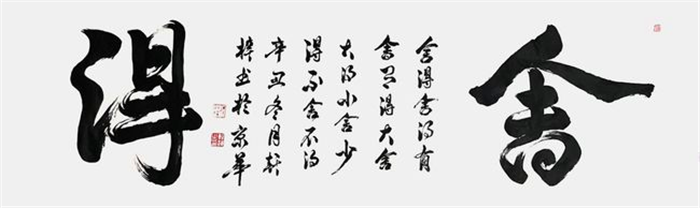 舍
舍得舍得有
舍有得大舍
大得小舍少
得不舍不得
辛丑冬月轩
梓书於京華
得